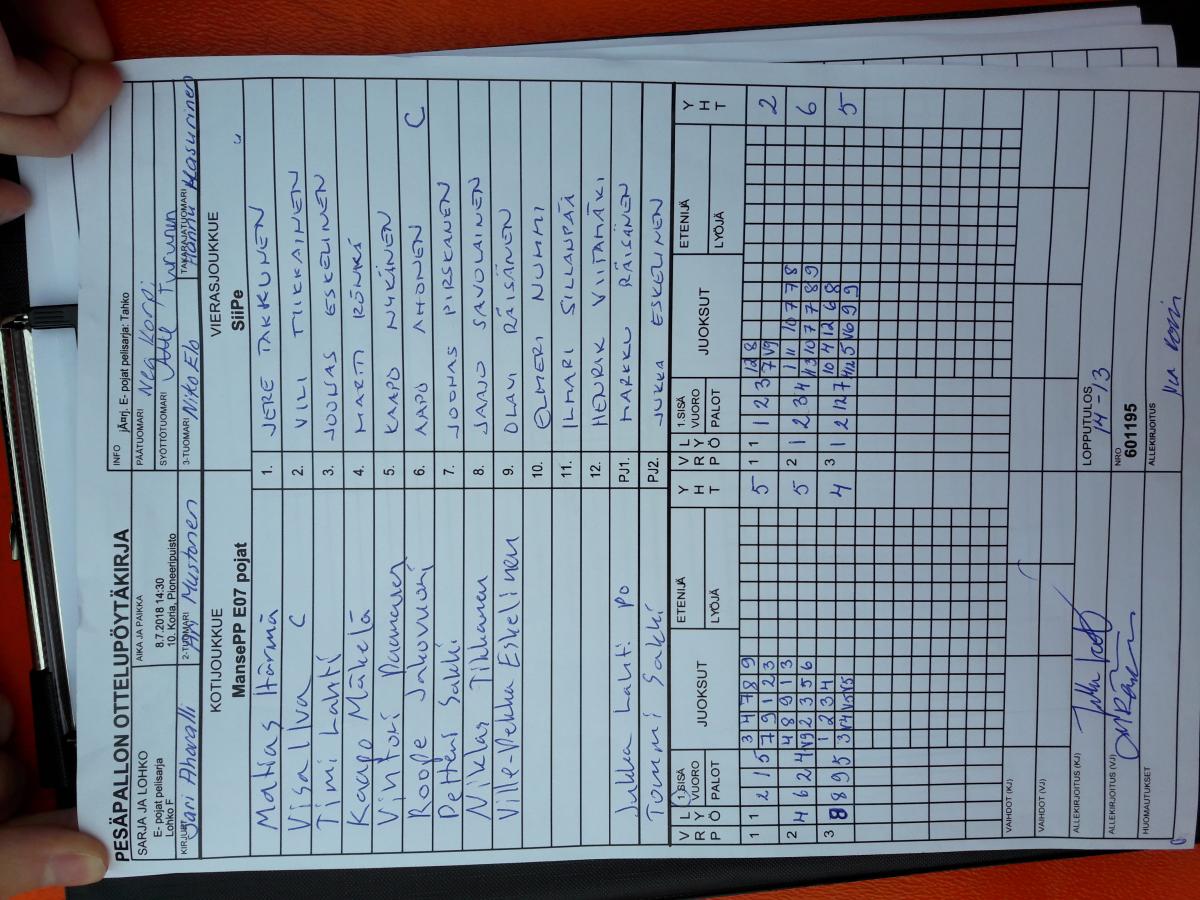 PESÄPALLON OTTELUPÖYTÄKIRJA
SARJA JA LOHKO
E- pojat pelisarja
Lohko F
AIKA JA PAIKKA
8.7.2018 14:30
10. Koria, Pioneeripuisto
INFO jÃ¤rj. E- pojat pelisarja: Tahko
PÄÄTUOMARI Nea Korpi
SYÖTTÖTUOMARI Turunen
KIRJURI Jani Ahavalli
2-TUOMARI Mustonen
3-TUOMARI Niko Elo
TAKARAJATUOMARI Hannu Kasurinen
KOTIJOUKKUE
MansePP E07 pojat
VIERASJOUKKUE
SiiPe
Matias Härmä 1. JERE TAKKUNEN
Visa Ilva C 2. VILI TIIKKAINEN
Timi Lahti 3. JOONAS ESKELINEN
Kaapo Mäkelä 4. MARTI RÖNKÄ
5. KAAPO NYKÄNEN
Roope Jakovuori 6. AAPO AHONEN C
Petteri Sakki 7. JOONAS PIRSKANEN
Niklas Tikkanen 8. JANO SAVOLAINEN
Ville-Pekka Eskelinen 9. OLAVI RÄISÄNEN
10. ELMERI NUMMI
11. ILMARI SILLANPÄÄ
12. HENRIK VIITAMÄKI
Jukka Lahti PO PJ1. MARKKU RÄISÄNEN
Tommi Sakki PJ2. JUKKA ESKELINEN
VRP LYÖ 1.SISÄ VUORO PALOT JUOKSUT ETENIJÄ LYÖJÄ YHT
VRP LYÖ 1.SISÄ VUORO PALOT JUOKSUT ETENIJÄ LYÖJÄ YHT
1 1 2 1 5 3 4 7 8 9 5 1 1 1 2 3 12 8 2
7 9 1 2 3 7 V9
2 4 6 2 4 4 8 9 1 3 5 2 1 2 3 4 1 11 10 7 7 8 6
V9 2 3 5 6 13 10 7 7 8 9
3 8 8 9 5 1 2 3 4 4 3 1 2 12 7 10 4 12 6 8 5
3 V4 V5 V5 4 12 5 V6 9 9
VAIHDOT (KJ)
VAIHDOT (VJ)
ALLEKIRJOITUS (KJ)
LOPPUTULOS
14-13
ALLEKIRJOITUS (VJ)
NRO
601195
HUOMAUTUKSET
ALLEKIRJOITUS